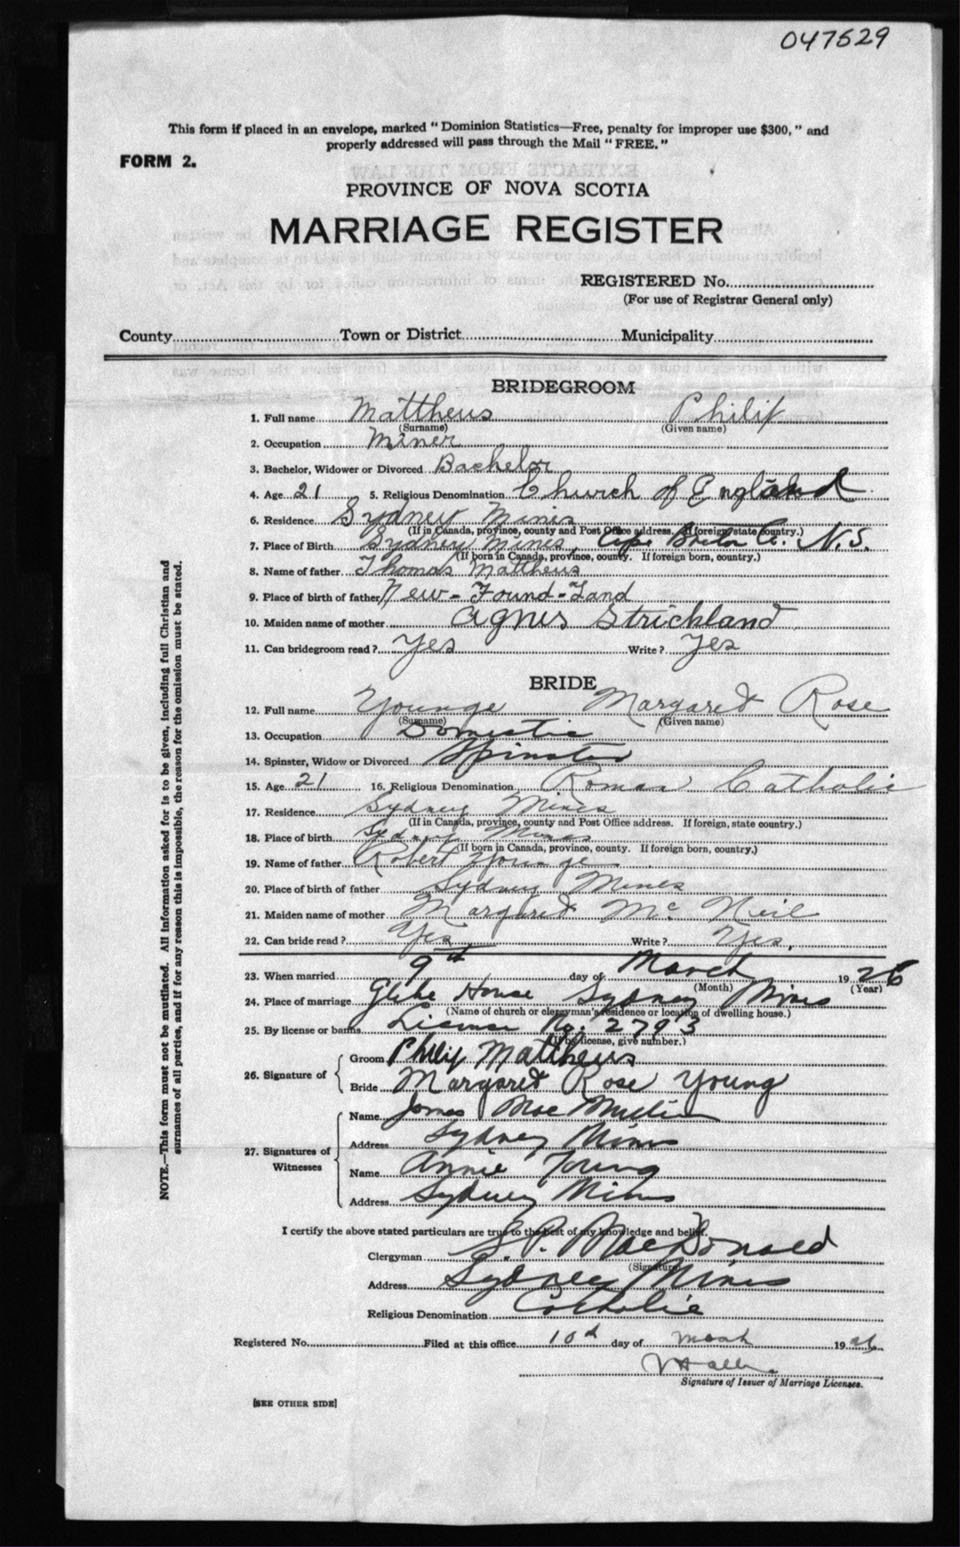 047529
This form if placed in an envelope, marked "Dominion Statistics—Free, penalty for improper use $300," and
properly addressed will pass through the Mail "FREE."
FORM 2.
PROVINCE OF NOVA SCOTIA
MARRIAGE REGISTER
REGISTERED No.
(For use of Registrar General only)
County Town or District Municipality
BRIDEGROOM
1. Full name Mattheus Philip
(Surname) (Given name)
2. Occupation Miner
3. Bachelor, Widower or Divorced Bachelor
4. Age 21 5. Religious Denomination Church of England
6. Residence Sydney Mines
(If in Canada, province, county and Post Office address. If foreign, state country.)
7. Place of Birth Sydney Mines Cape Breton Co. N.S.
(If born in Canada, province, county. If foreign born, country.)
8. Name of father Thomas Mattheus
9. Place of birth of father New-Found-Land
10. Maiden name of mother Agnes Strickland
11. Can bridegroom read? Yes Write? Yes
BRIDE
12. Full name Younge Margaret Rose
(Surname) (Given name)
13. Occupation Domestic
14. Spinster, Widow or Divorced Spinster
15. Age 21 16. Religious Denomination Roman Catholic
17. Residence Sydney Mines
(If in Canada, province, county and Post Office address. If foreign, state country.)
18. Place of birth Sydney Mines
(If born in Canada, province, county. If foreign born, country.)
19. Name of father Robert Younge
20. Place of birth of father Sydney Mines
21. Maiden name of mother Margaret McNeil
22. Can bride read? Yes Write? Yes.
23. When married 9th day of March 1926
(Month) (Year)
24. Place of marriage Glebe House Sydney Mines
(Name of church or clergyman's residence or location of dwelling house.)
25. By license or banns License No. 2793
(If by license, give number.)
26. Signature of
Groom Philip Mattheus
Bride Margaret Rose Young
27. Signatures of Witnesses
Name James Mac
Address Sydney Mines
Name Annie Young
Address Sydney Mines
I certify the above stated particulars are true to the best of my knowledge and belief.
Clergyman P. MacDonald
(Signature)
Address Sydney Mines
Religious Denomination Catholic
Registered No. Filed at this office 10th day of March 1926
Signature of Issuer of Marriage Licenses.
[SEE OTHER SIDE]
NOTE.—This form must not be mutilated. All information asked for is to be given, including full Christian and
surnames of all parties, and if for any reason this is impossible, the reason for the omission must be stated.